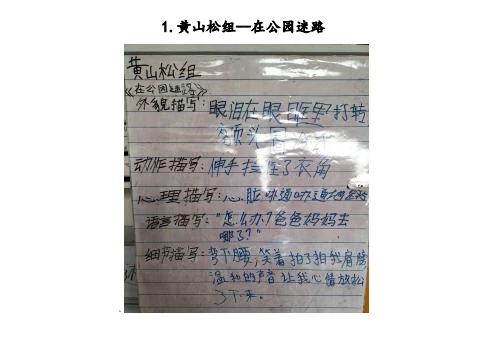 1.黄山松组—在公园迷路
黄山松组
《在公园迷路》
外貌描写：眼泪在眼眶里打转
额头冒
动作描写：伸手拦住了衣角
心理描写：心脏扑通扑通
语言描写：“怎么办？爸爸妈妈去
哪了？”
细节描写：弯下腰，笑着拍了拍我肩膀
温和的声音让我心情放松
了下来。